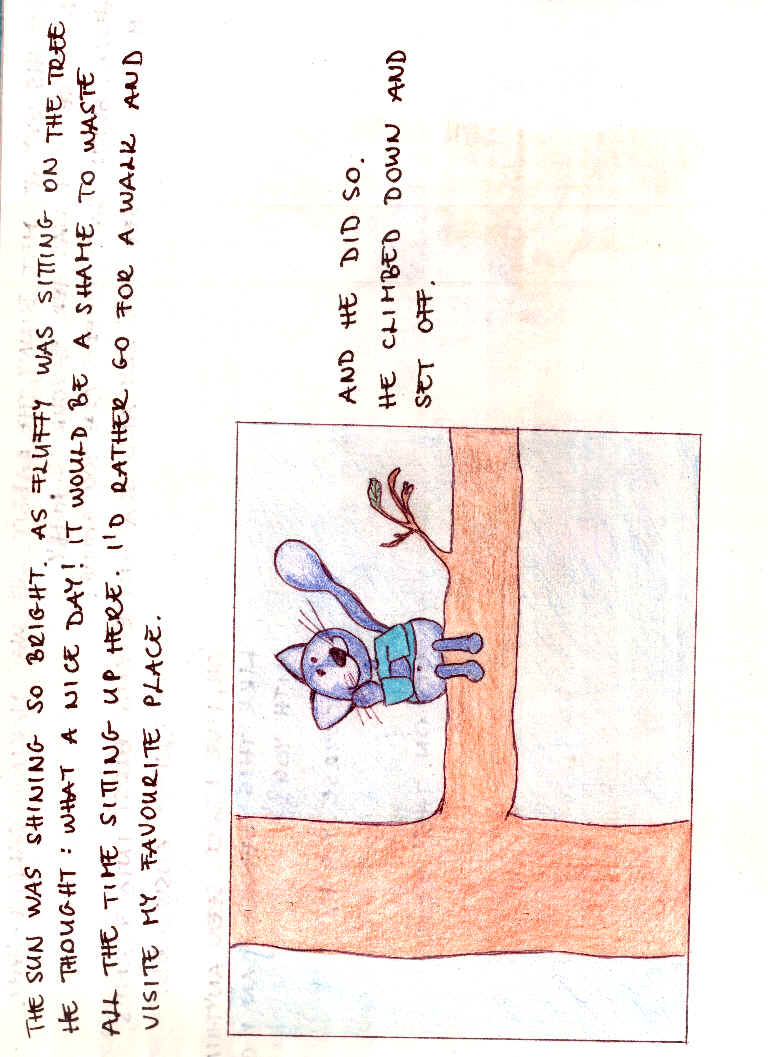 THE SUN WAS SHINING SO BRIGHT. AS FLUFFY WAS SITTING ON THE TREE
HE THOUGHT: WHAT A NICE DAY! IT WOULD BE A SHAME TO WASTE
ALL THE TIME SITTING UP HERE. I'D RATHER GO FOR A WALK AND
VISITE MY FAVOURITE PLACE.
AND HE DID SO.
HE CLIMBED DOWN AND
SET OFF.